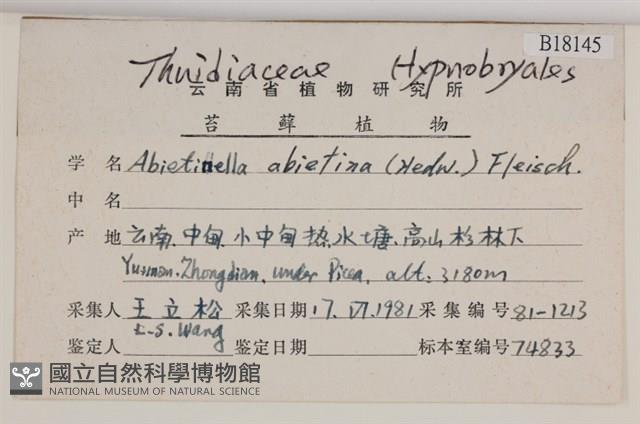 B18145
Thuidiaceae Hypnobryales
云南省植物研究所
苔藓植物
学名 Abietinella abietina (Hedw.) Fleisch.
中名
产地 云南.中甸.小中甸热水塘.高山杉林下
Yunnan. Zhongdian, under Picea, alt: 3180m
采集人 王立松 采集日期 17. VI. 1981 采集编号 81-1213
L.S. Wang
鉴定人 鉴定日期 标本室编号 74833
國立自然科學博物館
NATIONAL MUSEUM OF NATURAL SCIENCE